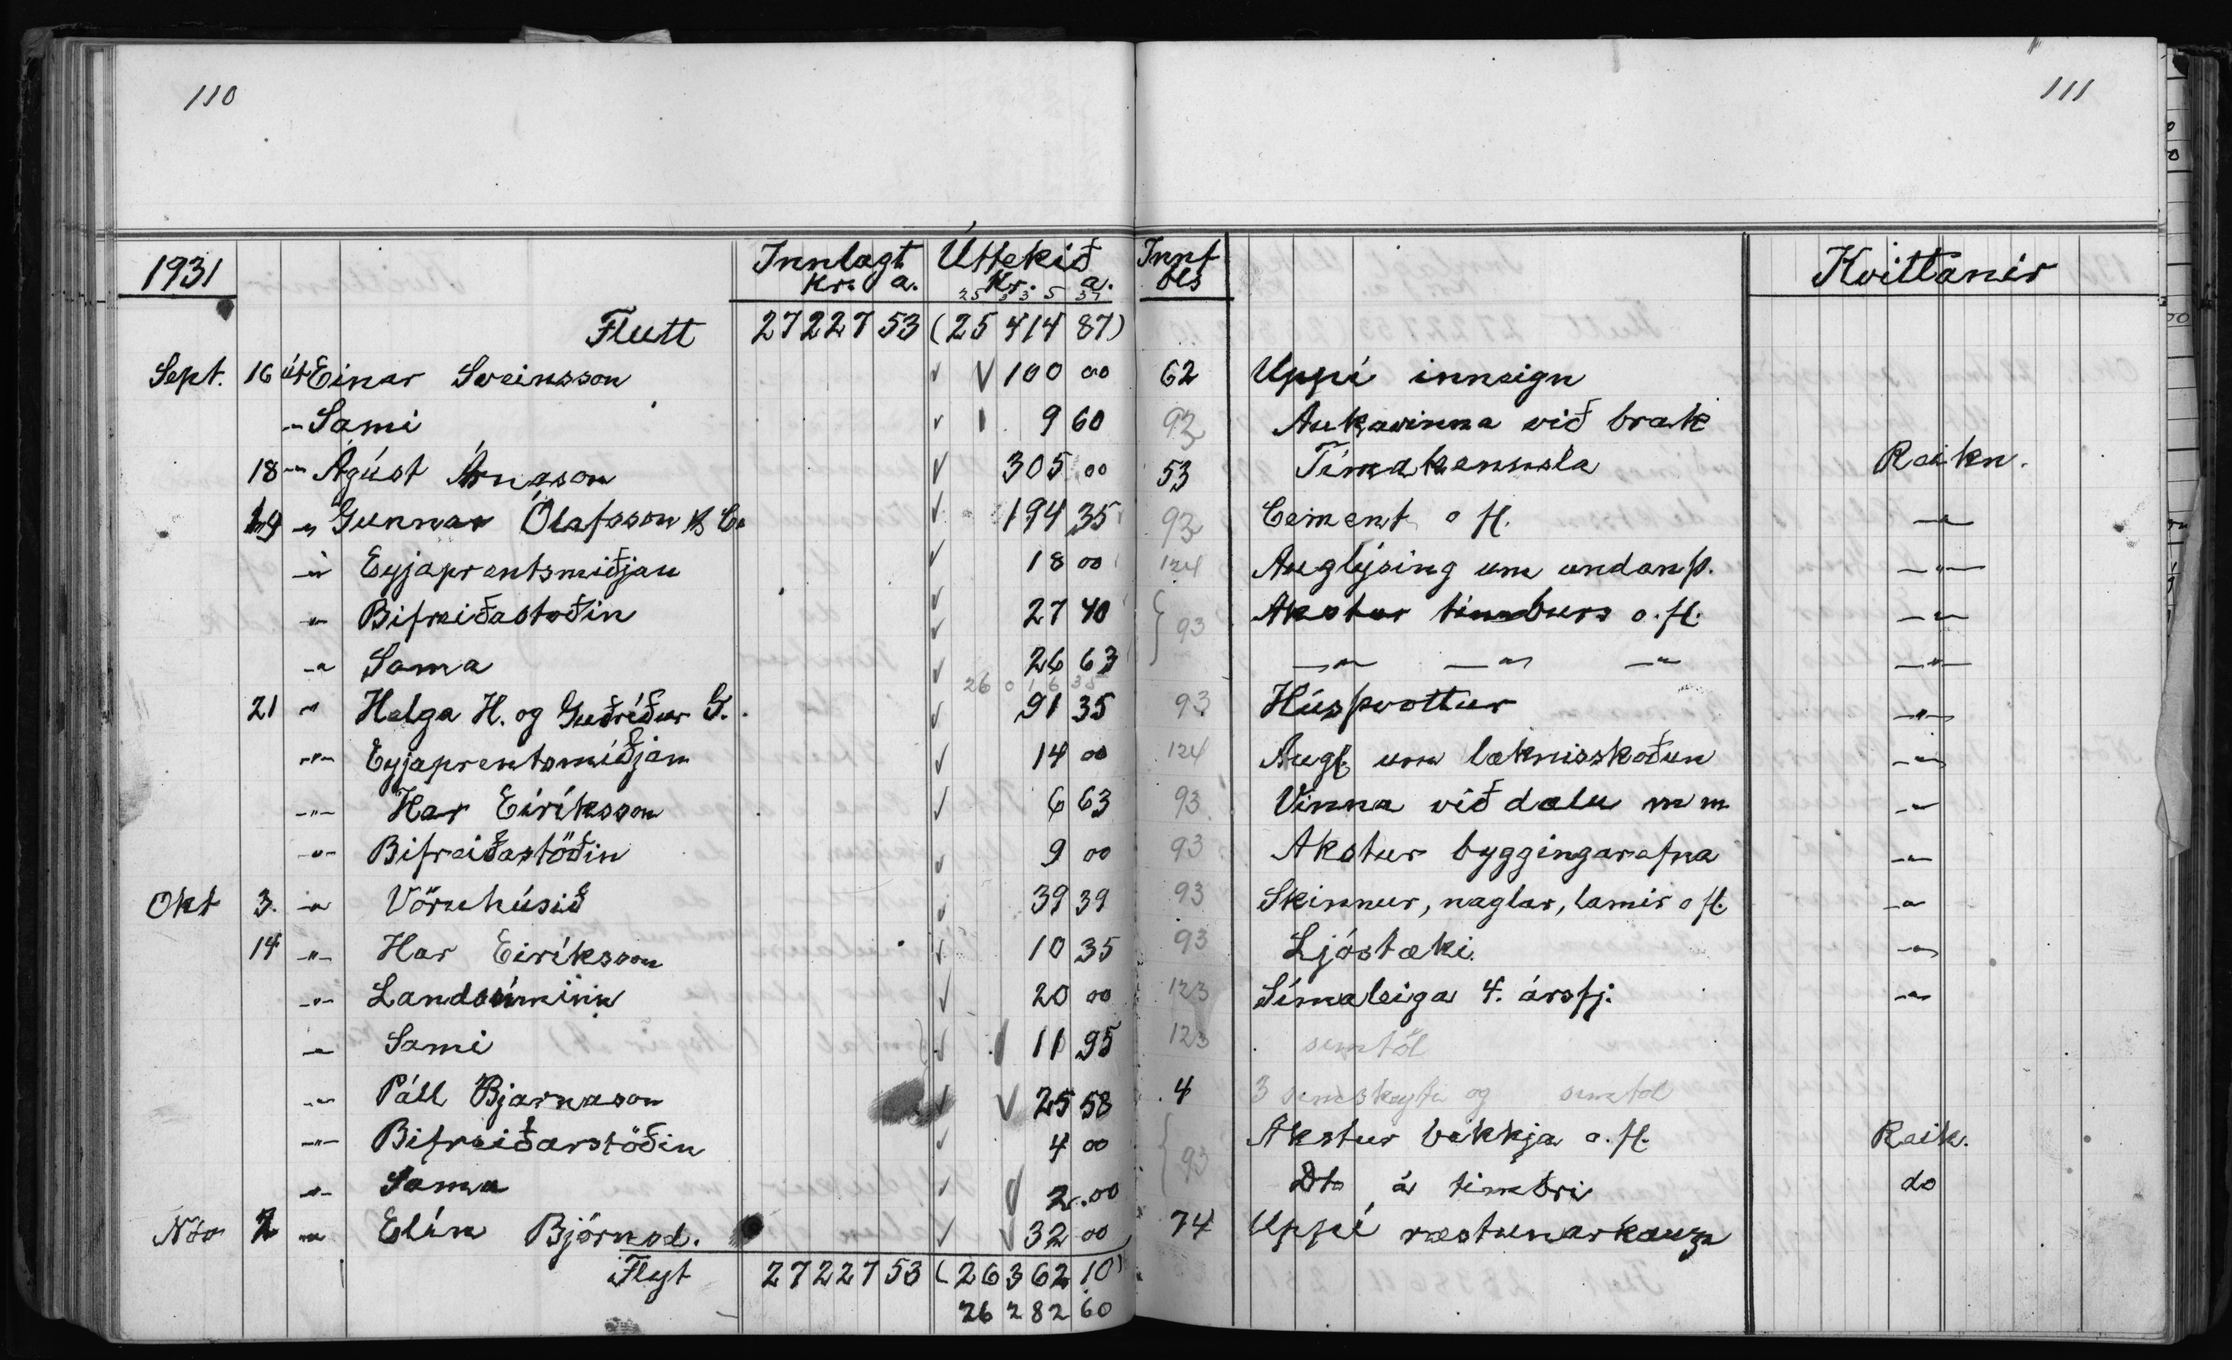 110
111
1931 Innlagt Úttekið Innf Kvittanir
kr. a. Kr. a. bls
25 3 3 5 37
Flutt 27227 53 (25 414 87)
Sept. 16 út Einar Sveinsson 100 00 62 Uppí inneign
-"- Sami 9 60 93 Aukavinna við brak
18 -"- Ágúst Árnason 305 00 53 Tímakennsla Reikn.
19 -"- Gunnar Ólafsson & Co 194 35 93 Cement o fl. -"-
-"- Eyjaprentsmiðjan 18 00 124 Auglýsing um undanþ. -"-
-"- Bifreiðastöðin 27 40 93 Akstur timburs o. fl. -"-
-"- Sama 26 63 -"- -"- -"- -"-
26 0 1 6 35
21 -"- Helga H. og Guðríður G. 91 35 93 Húsþvottur -"-
-"- Eyjaprentsmiðjan 14 00 124 Augl. um læknisskoðun -"-
-"- Har Eiríksson 6 63 93 Vinna við dælu m m -"-
-"- Bifreiðastöðin 9 00 93 Akstur byggingarefna -"-
Okt 3. -"- Vöruhúsið 39 39 93 Skinnur, naglar, lamir o fl. -"-
14 -"- Har Eiríksson 10 35 93 Ljóstæki -"-
-"- Landsíminn 20 00 123 Símaleiga 4. ársfj. -"-
-"- Sami 11 95 123 símtöl
-"- Páll Bjarnason 25 58 4 3 símskeyti og símtöl
-"- Bifreiðarstöðin 4 00 93 Akstur bekkja o. fl. Reik.
-"- Sama 2.00 Dto á timbri do
Nóv 2 -"- Elín Björnsd. 32 00 74 Uppí ræstunarkaup
Flyt 27227 53 (26362 10)
26 282 60